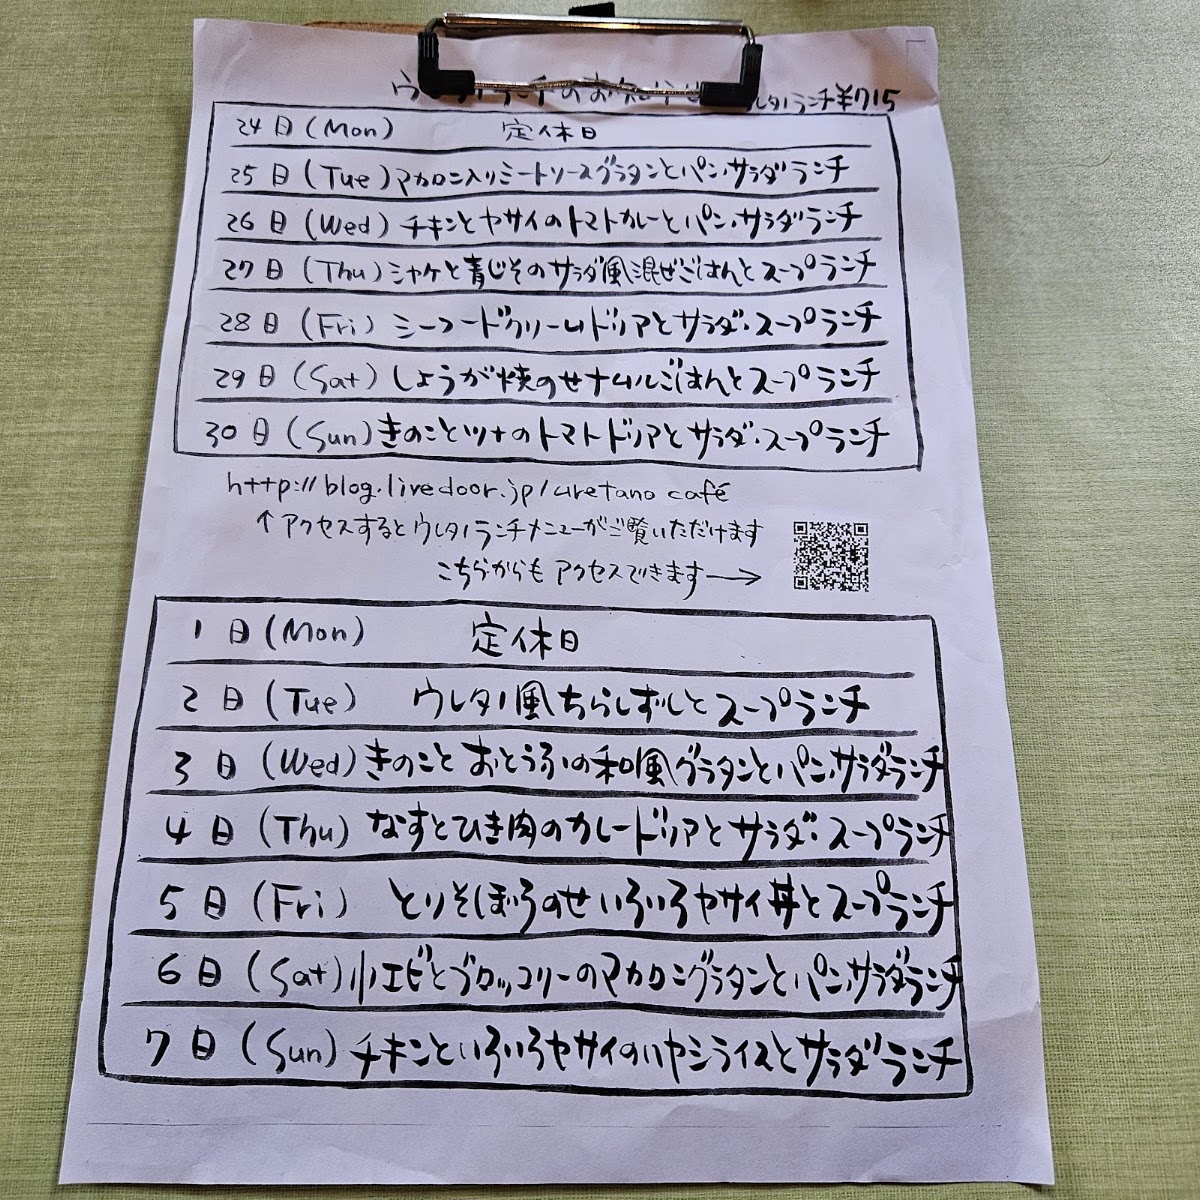 ウレタノランチのお知らせ ウレタノランチ¥715
24日(Mon) 定休日
25日(Tue)マカロニ入りミートソースグラタンとパン、サラダランチ
26日(Wed)チキンとヤサイのトマトカレーとパン、サラダランチ
27日(Thu)シャケと青じそのサラダ風混ぜごはんとスープランチ
28日(Fri)シーフードクリームドリアとサラダ・スープランチ
29日(Sat)しょうが焼のせナムルごはんとスープランチ
30日(Sun)きのことツナのトマトドリアとサラダ・スープランチ
http://blog.livedoor.jp/uretano café
↑アクセスするとウレタノランチメニューがご覧いただけます
こちらからもアクセスできます→
1日(Mon) 定休日
2日(Tue) ウレタノ風ちらしずしとスープランチ
3日(Wed)きのことおとうふの和風グラタンとパン、サラダランチ
4日(Thu)なすとひき肉のカレードリアとサラダ・スープランチ
5日(Fri)とりそぼろのせいろいろヤサイ丼とスープランチ
6日(Sat)小エビとブロッコリーのマカロニグラタンとパン、サラダランチ
7日(Sun)チキンといろいろヤサイのハヤシライスとサラダランチ